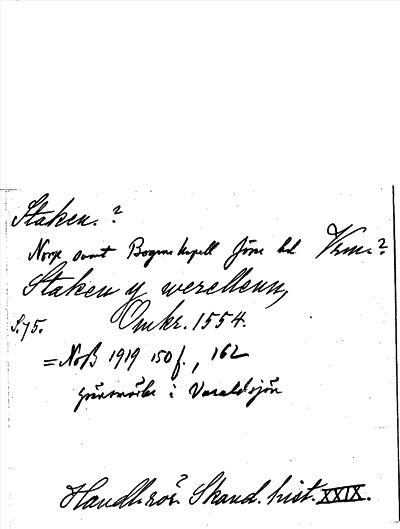 Staken. ?
Norge samt Bogens kapell Jösse hd Vrm. ?
Staken y werellenn,
S. 75. Omkr. 1554.
= NoB 1919 150 f., 162
gränsmärke i Varaldsjön
Handl. rör. Skand. hist. XXIX.